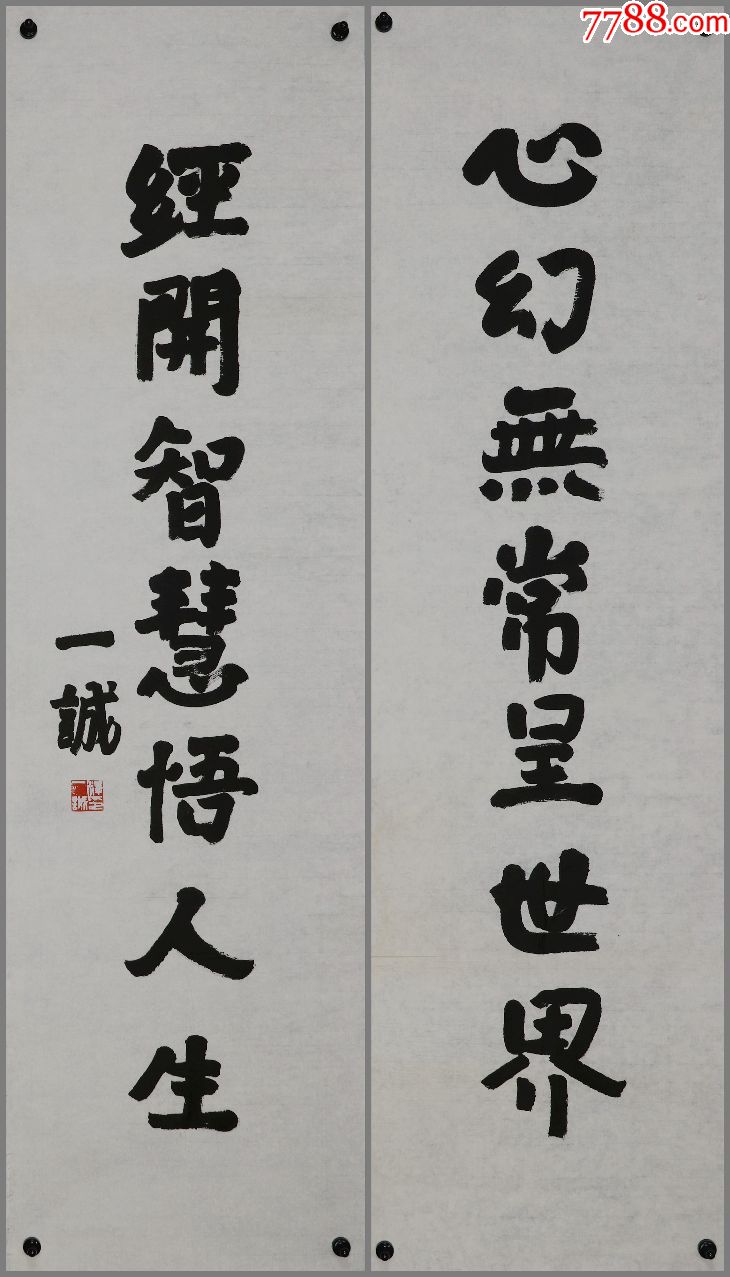 7788.com
心幻無常呈世界
經開智慧悟人生
一誠